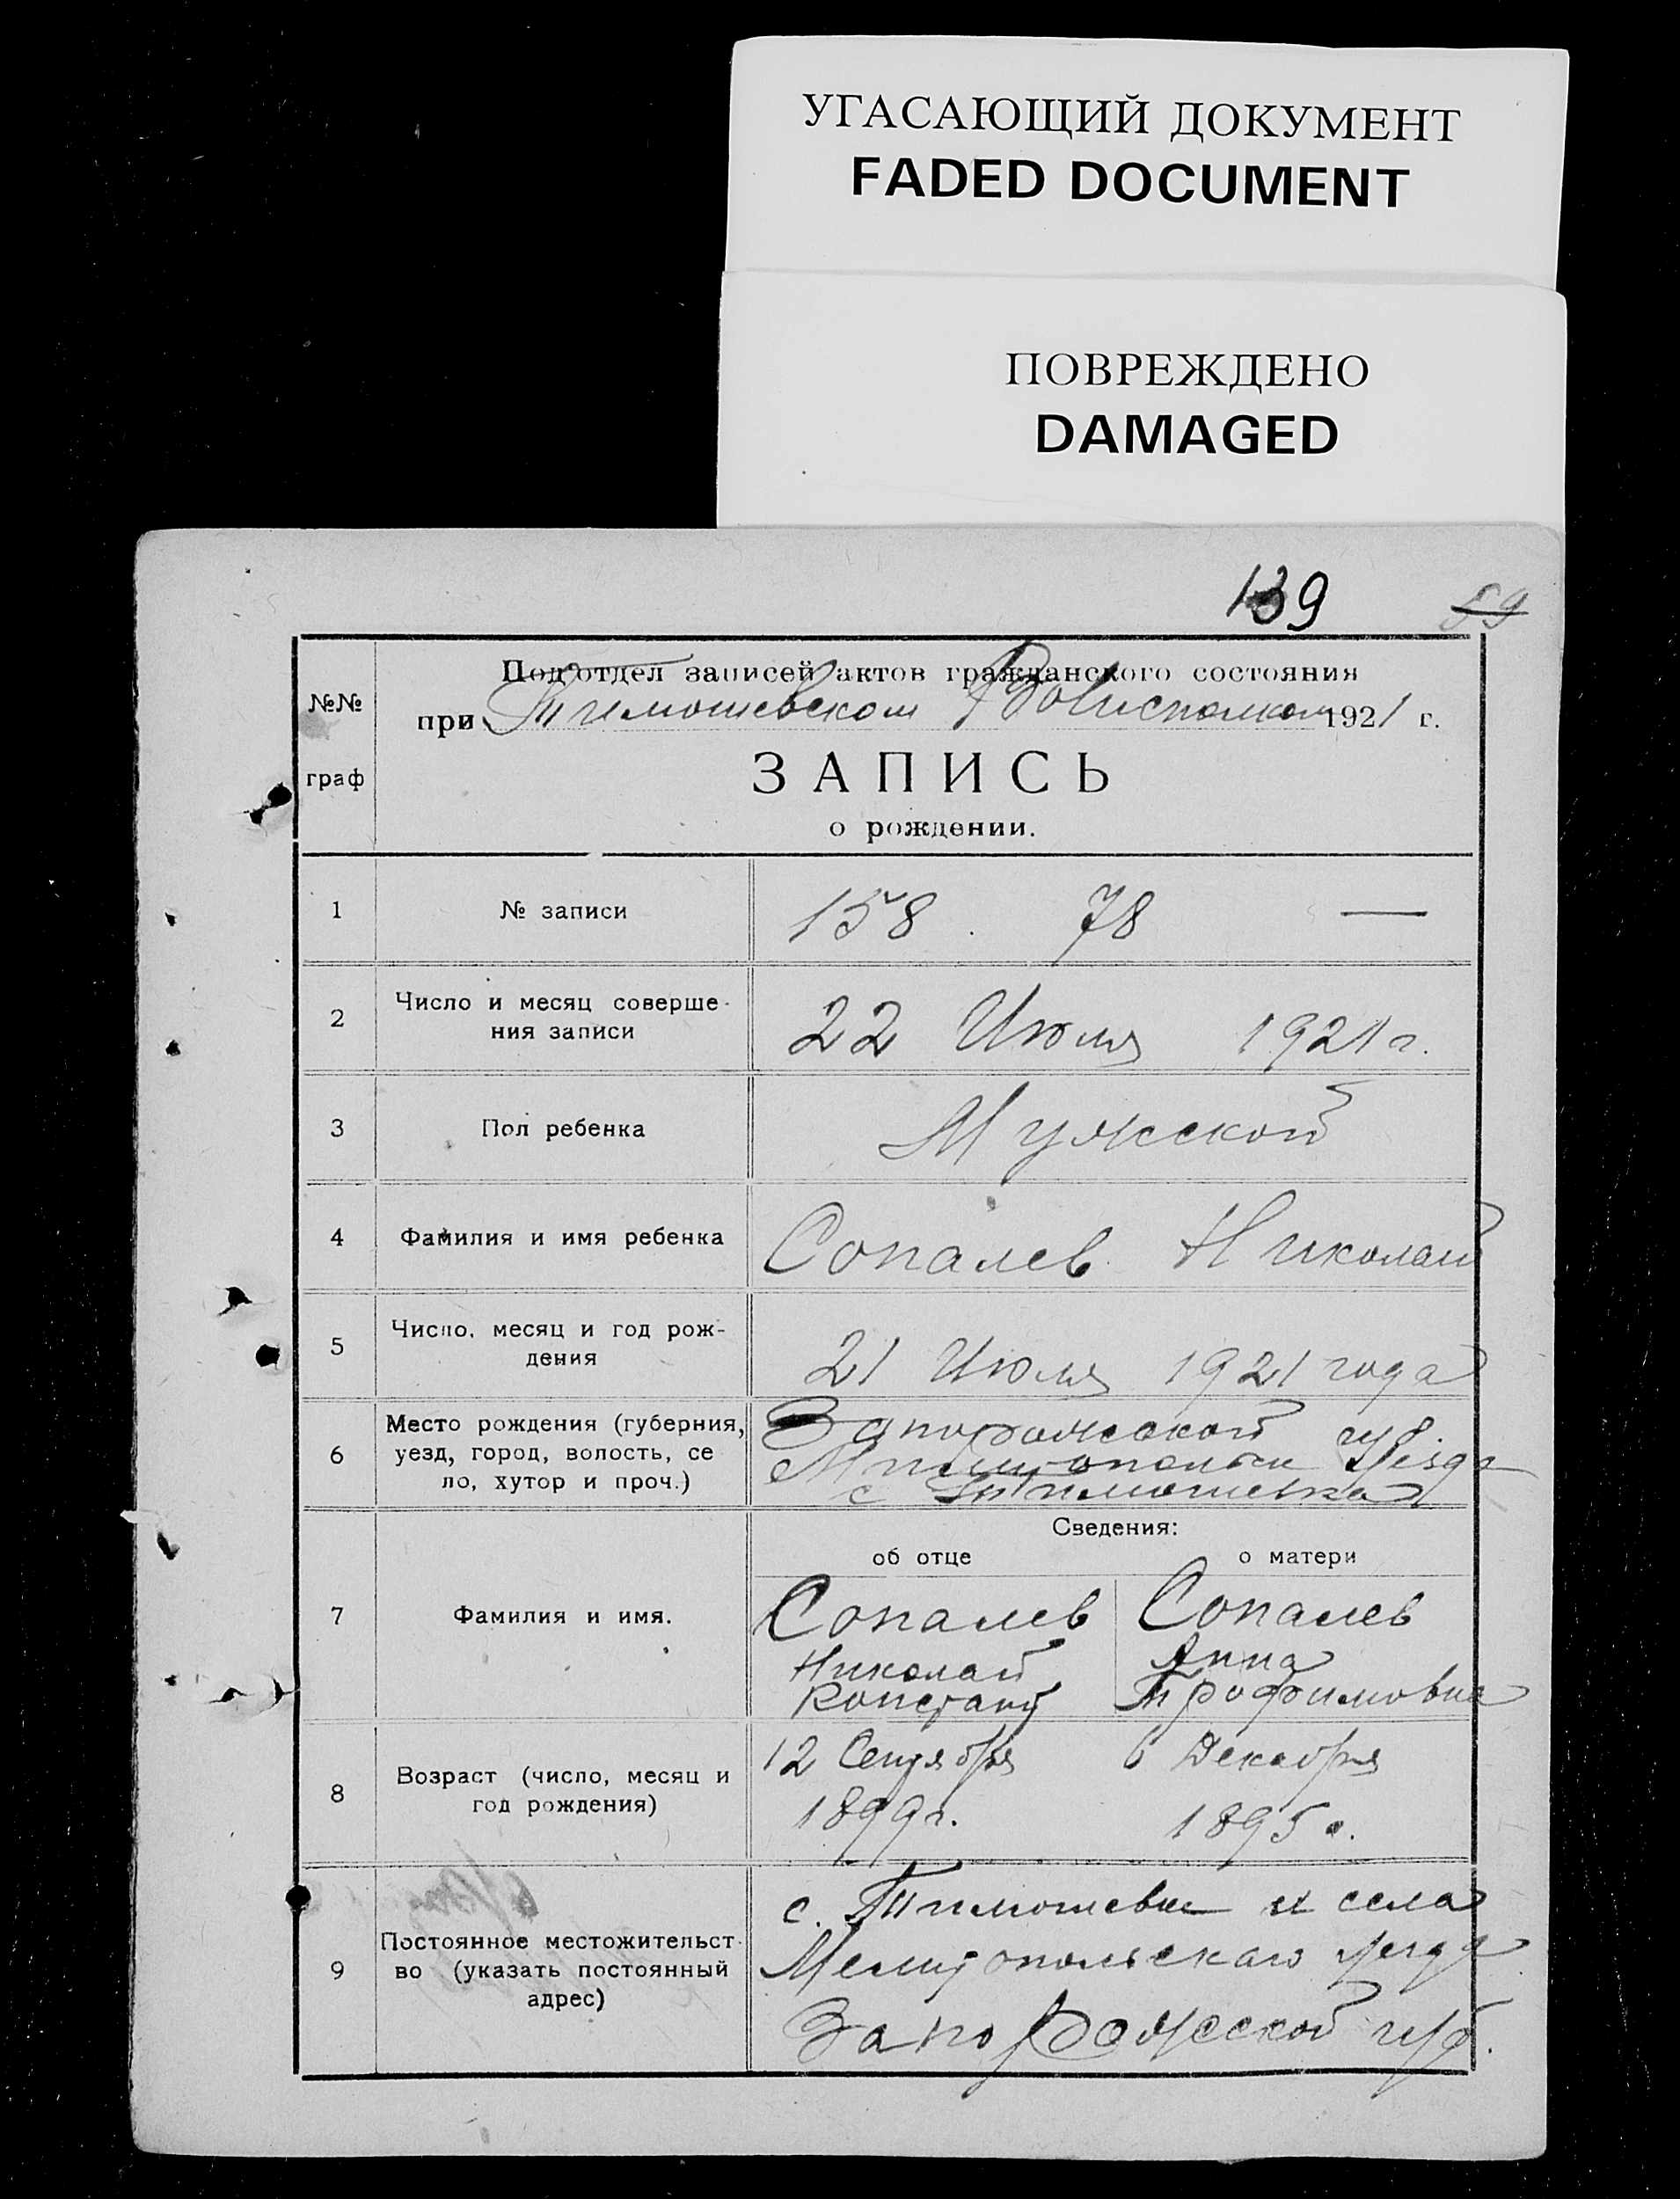 УГАСАЮЩИЙ ДОКУМЕНТ
FADED DOCUMENT
ПОВРЕЖДЕНО
DAMAGED
139 59
Под'отдел записей актов гражданского состояния
при Тимошевском Волисполком 1921 г.
№№
граф
ЗАПИСЬ
о рождении.
1 № записи 158. 78 —
2 Число и месяц соверше-
ния записи 22 Июля 1921 г.
3 Пол ребенка Мужской
4 Фамилия и имя ребенка Сопалев Николай
5 Число, месяц и год рож-
дения 21 Июля 1921 года
6 Место рождения (губерния,
уезд, город, волость, се
ло, хутор и проч.)
Запорожской губ.
уезда
с Тимошевка
Сведения:
об отце о матери
7 Фамилия и имя. Сопалев Сопалев
Николай Анна
Констант Трофимовна
8 Возраст (число, месяц и
год рождения)
12 Сентября 6 Декабря
1899 г. 1895 г.
9 Постоянное местожительст-
во (указать постоянный
адрес)
с. Тимошевка села
Мелитопольскаго уезда
Запорожской губ.